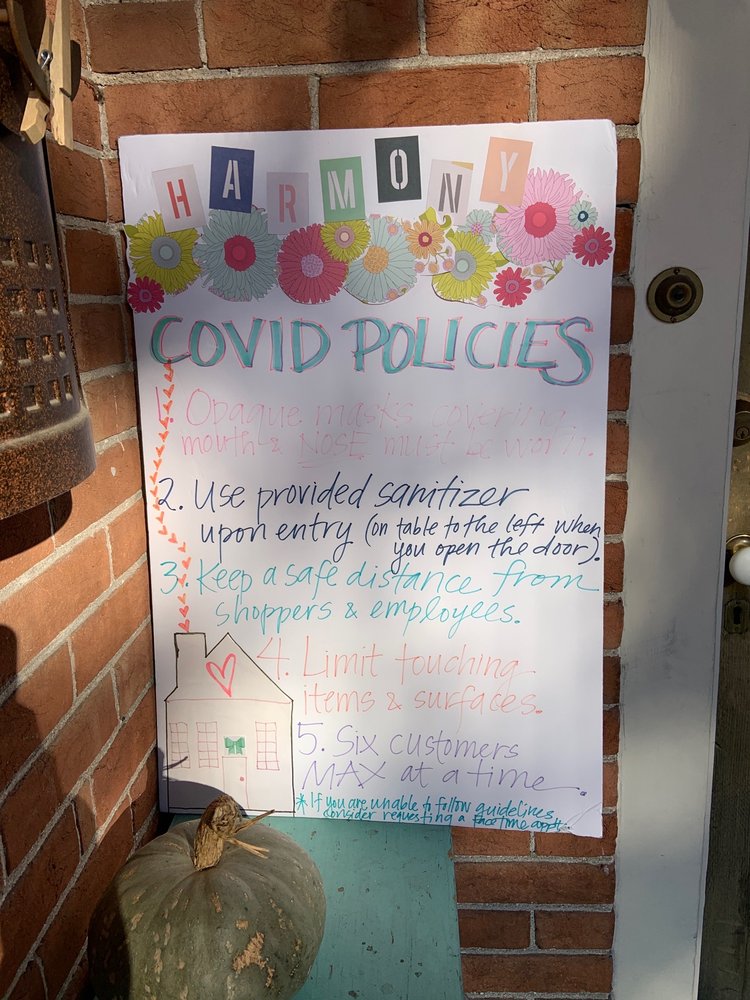 HARMONY
COVID POLICIES
1. Opaque masks covering
mouth & NOSE must be worn.
2. Use provided sanitizer
upon entry (on table to the left when
you open the door).
3. Keep a safe distance from
shoppers & employees.
4. Limit touching
items & surfaces.
5. Six customers
MAX at a time.
* If you are unable to follow guidelines,
consider requesting a facetime appt.